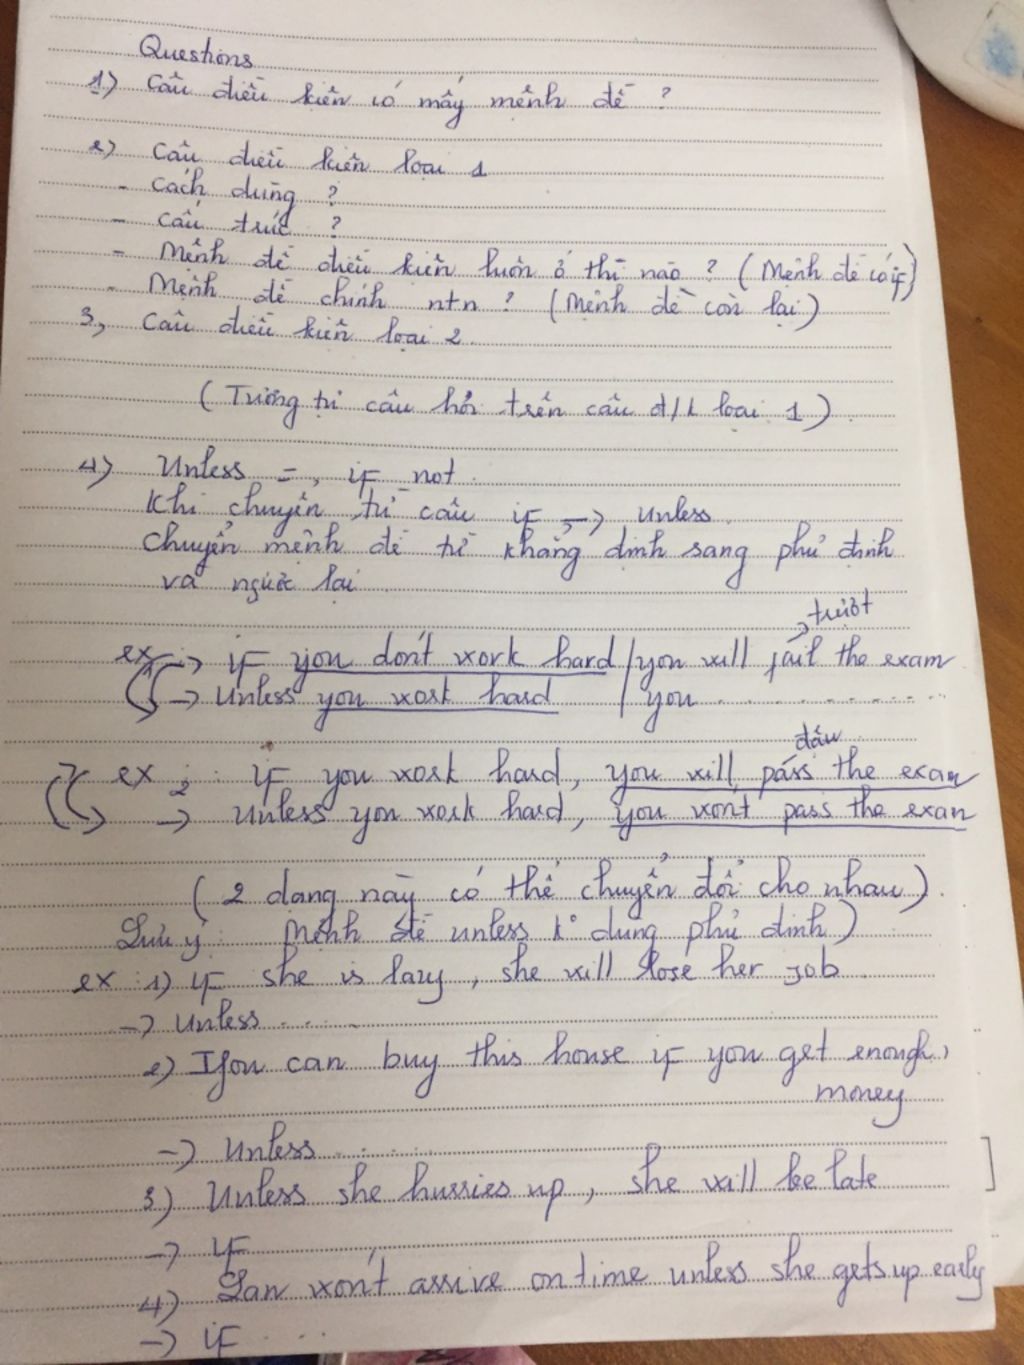 Questions
1) Câu điều kiện có mấy mệnh đề ?
2) Câu điều kiện loại 1
- Cách dùng ?
- Cấu trúc ?
- Mệnh đề điều kiện luôn ở thì nào ? ( Mệnh đề có if )
- Mệnh đề chính ntn ? ( Mệnh đề còn lại )
3, Câu điều kiện loại 2
( Tương tự câu hỏi trên câu đ/k loại 1 )
4) Unless = if not
Khi chuyển từ câu if -> Unless
Chuyển mệnh đề từ khẳng định sang phủ định
và ngược lại
trượt
ex : -> if you don't work hard / you will fail the exam
-> Unless you work hard / you ............
đậu
ex 2 : If you work hard, you will pass the exam
-> Unless you work hard, you won't pass the exam
( 2 dạng này có thể chuyển đổi cho nhau )
Lưu ý : Mệnh đề unless k° dùng phủ định )
ex 1) If she is lazy , she will lose her job
-> Unless .......
2) You can buy this house if you get enough
money
-> Unless .........
3) Unless she hurries up , she will be late
-> if
4) Lan won't arrive on time unless she gets up early
-> if ....